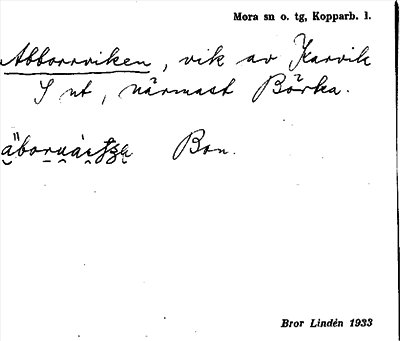 Mora sn o. tg, Kopparb. l.
Abborrviken, vik av Karvik
S ut, närmast Börka.
Bon.
Bror Lindén 1933